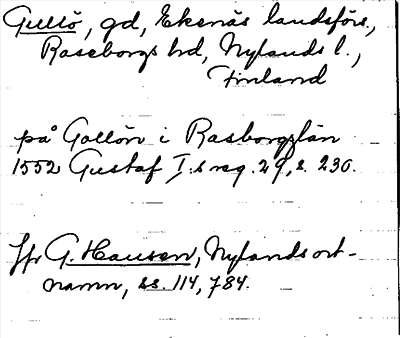 Gullö, gd, Ekenäs landsförs.,
Raseborgs hd, Nylands l.,
Finland
på Gollön i Rasborgslän
1552 Gustaf I:s reg. 29, s. 230.
Jfr G. Hausen, Nylands ort-
namn, ss. 114, 784.